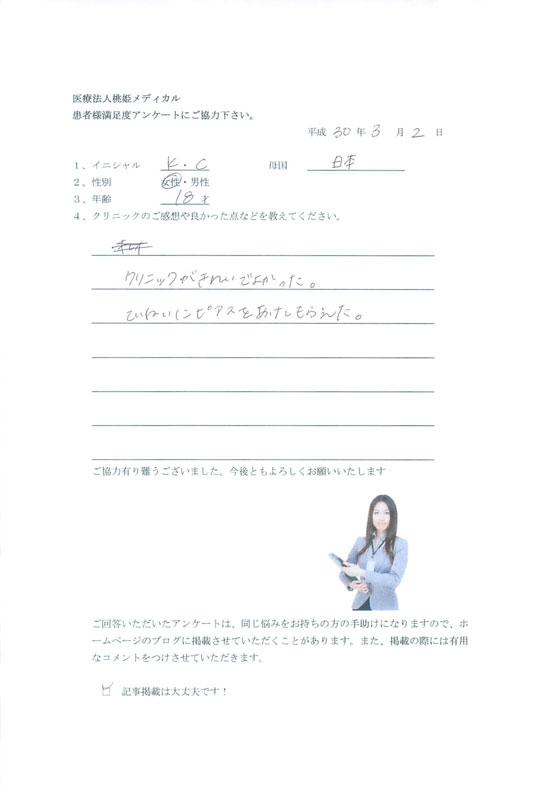 医療法人桃姫メディカル
患者様満足度アンケートにご協力下さい。
平成 30 年 3 月 2 日
1、イニシャル K・C 母国 日本
2、性別 女性・男性
3、年齢 18才
4、クリニックのご感想や良かった点などを教えてください。
クリニックがきれいでよかった。
ていねいにピアスをあけてもらえた。
ご協力有り難うございました。今後ともよろしくお願いいたします
ご回答いただいたアンケートは、同じ悩みをお持ちの方の手助けになりますので、ホ
ームページのブログに掲載させていただくことがあります。また、掲載の際には有用
なコメントをつけさせていただきます。
記事掲載は大丈夫です！